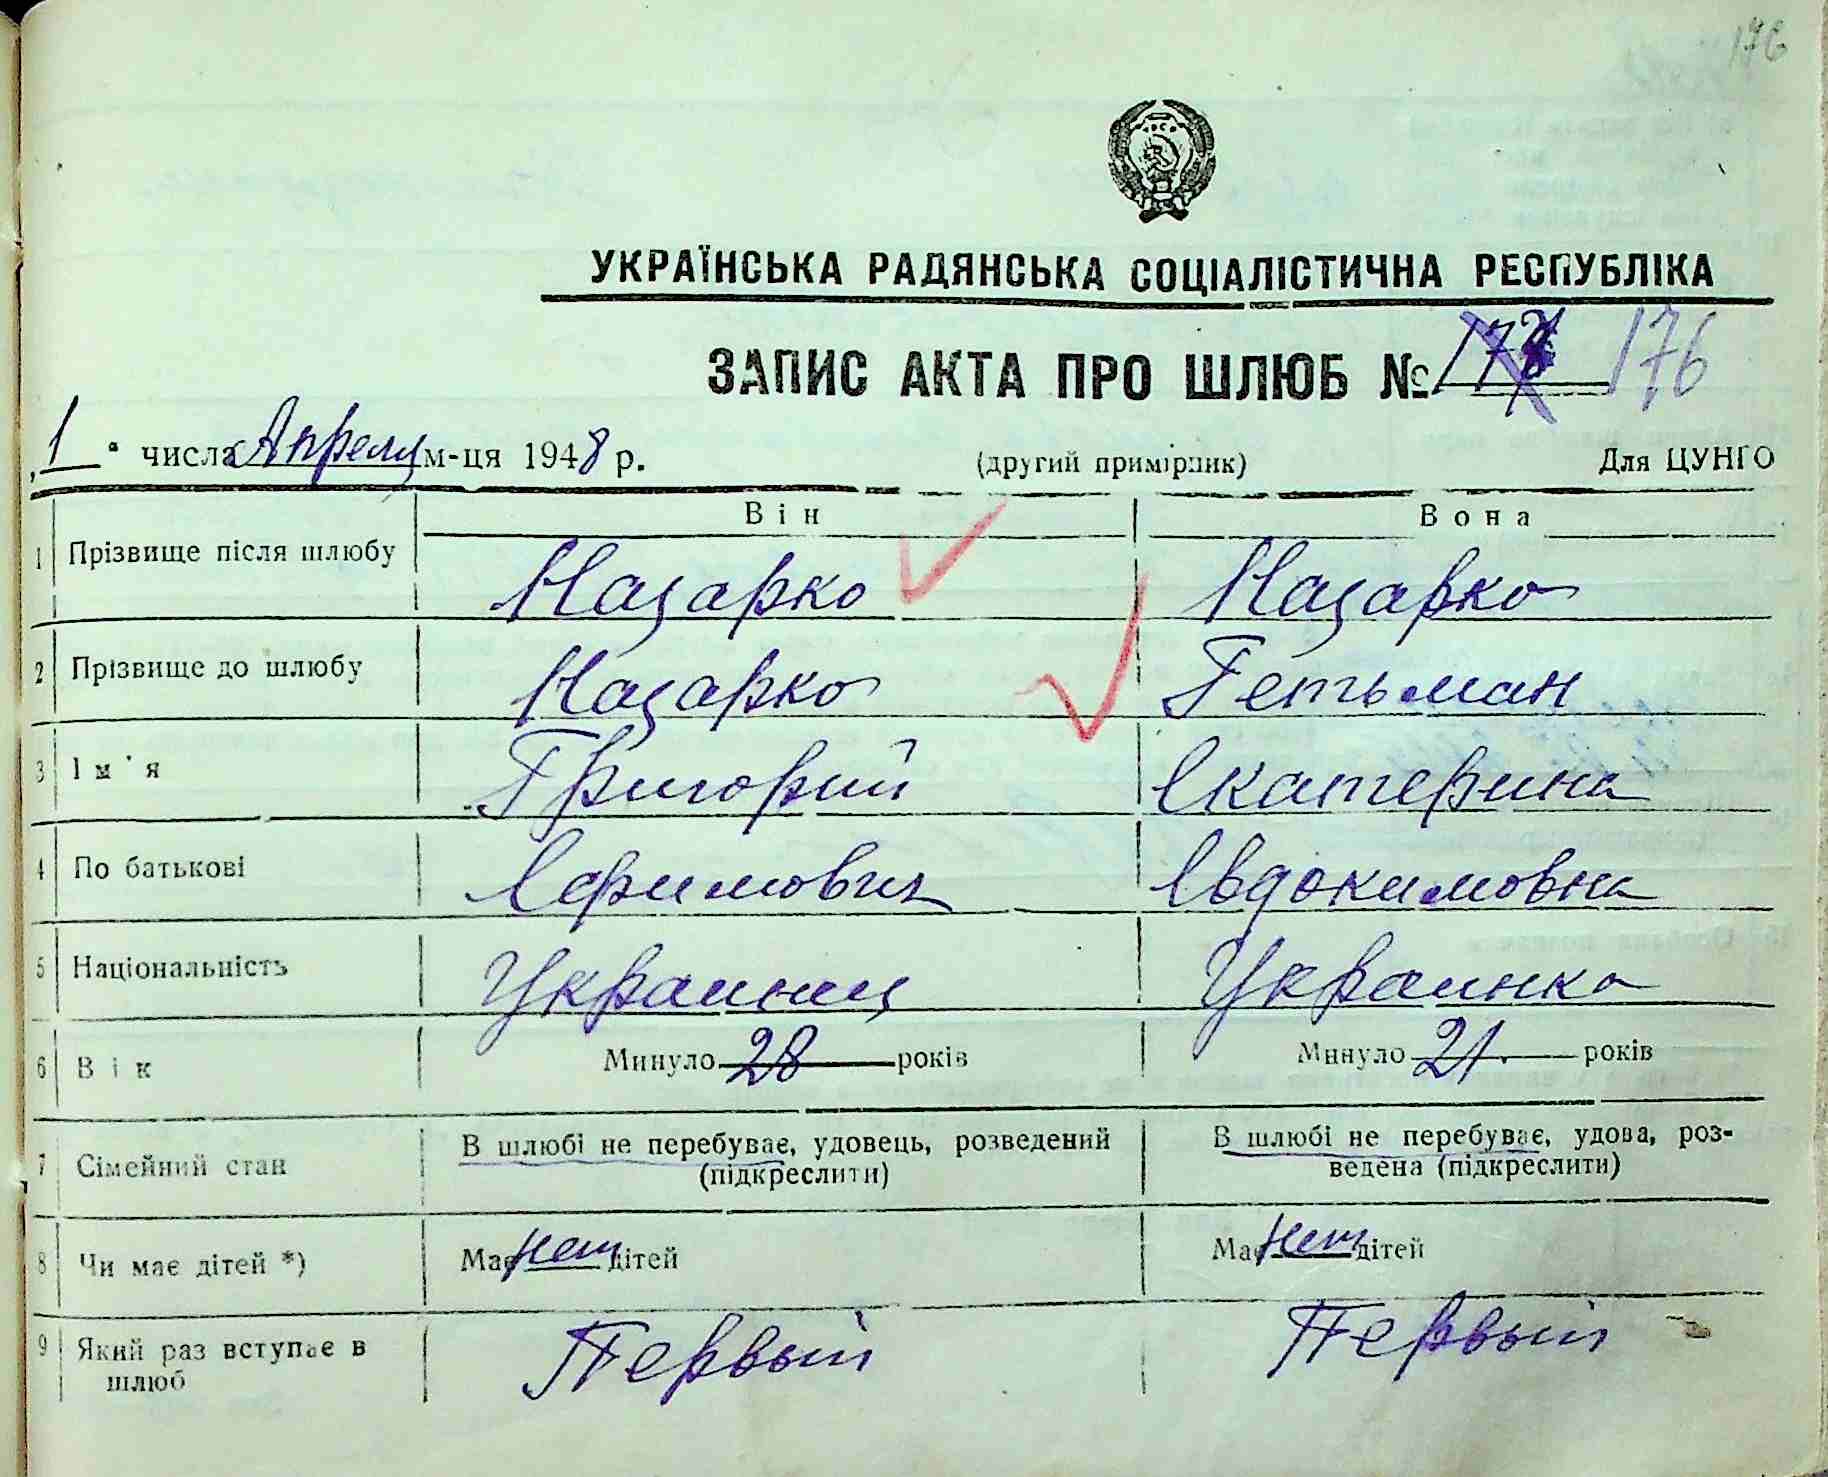 176
УКРАЇНСЬКА РАДЯНСЬКА СОЦІАЛІСТИЧНА РЕСПУБЛІКА
ЗАПИС АКТА ПРО ШЛЮБ № 176
„1" числа Апреля м-ця 1948 р. (другий примірник) Для ЦУНГО
Він Вона
1 Прізвище після шлюбу Назарко Назарко
2 Прізвище до шлюбу Назарко Гетьман
3 Ім'я Григорий Екатерина
4 По батькові Ефимович Евдокимовна
5 Національність Украинец Украинка
6 Вік Минуло 28 років Минуло 21. років
7 Сімейний стан В шлюбі не перебуває, удовець, розведений (підкреслити) В шлюбі не перебуває, удова, роз-
ведена (підкреслити)
8 Чи має дітей *) Має нет дітей Має нет дітей
9 Який раз вступає в шлюб Первый Первый